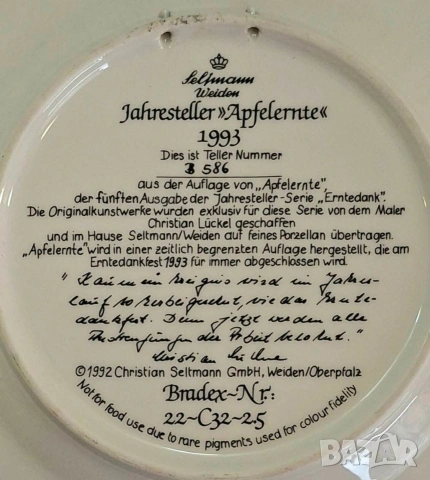 Seltmann
Weiden
Jahresteller »Apfelernte«
1993
Dies ist Teller Nummer
B 586
aus der Auflage von „Apfelernte",
der fünften Ausgabe der Jahresteller-Serie „Erntedank".
Die Originalkunstwerke wurden exklusiv für diese Serie von dem Maler
Christian Lückel geschaffen
und im Hause Seltmann/Weiden auf feines Porzellan übertragen.
„Apfelernte" wird in einer zeitlich begrenzten Auflage hergestellt, die am
Erntedankfest 1993 für immer abgeschlossen wird.
"Kaum ein Ereignis wird im Jahres-
lauf so herbeigesehnt, wie das Ernte-
dankfest. Denn jetzt werden alle
Anstrengungen der Arbeit belohnt."
Christian Lückel
©1992 Christian Seltmann GmbH, Weiden/Oberpfalz
Bradex-Nr:
22-C32-2.5
Not for food use due to rare pigments used for colour fidelity
BAZAR